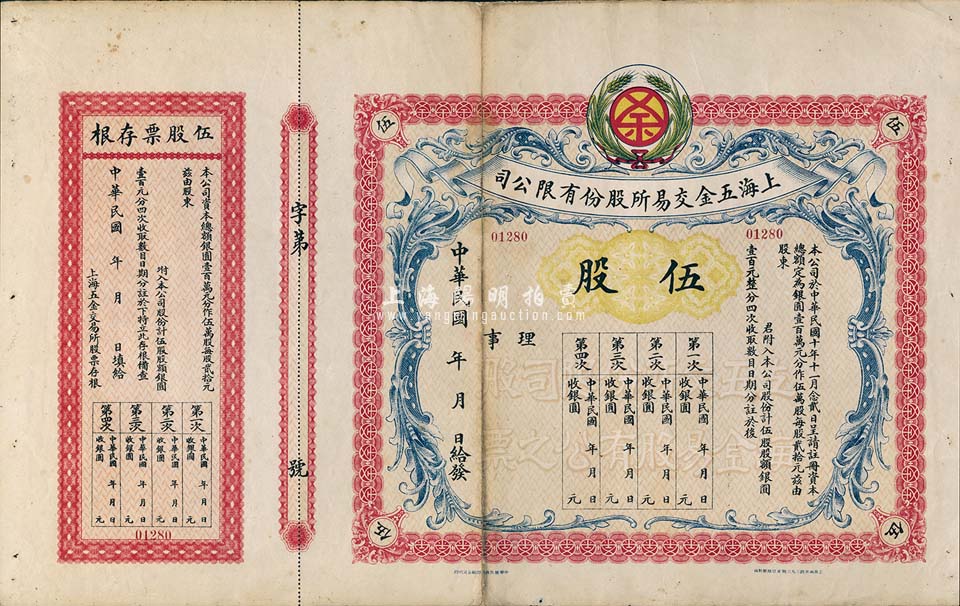 上海五金交易所股份有限公司
伍
伍
伍
伍
01280
01280
伍股
本公司於中華民國十年十一月念貳日呈請註冊資本
總額定為銀圓壹百萬元分作伍萬股每股貳拾元茲由
股東
君附入本公司股份計伍股股額銀圓
壹百元整分四次收取數目日期分註於後
第一次
中華民國 年 月 日
收銀圓 元
第二次
中華民國 年 月 日
收銀圓 元
第三次
中華民國 年 月 日
收銀圓 元
第四次
中華民國 年 月 日
收銀圓 元
理事
中華民國 年 月 日給發
字第 號
伍股票存根
本公司資本總額銀圓壹百萬元分作伍萬股每股貳拾元
茲由股東
附入本公司股份計伍股股額銀圓
壹百元分四次收取數目日期分註於下特立此存根備查
中華民國 年 月 日填給
上海五金交易所股票存根
第一次
中華民國 年 月 日
收銀圓 元
第二次
中華民國 年 月 日
收銀圓 元
第三次
中華民國 年 月 日
收銀圓 元
第四次
中華民國 年 月 日
收銀圓 元
01280
上海陽明拍賣
www.yangmingauction.com